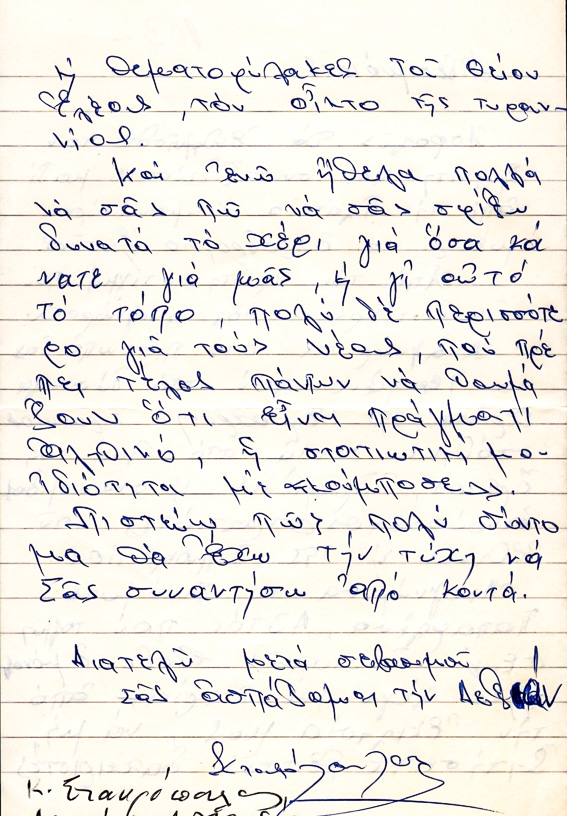 ἤ θεματοφύλακες τοῦ θείου
ἐλέους, τὸν οἶκτο τῆς τυραν-
νίας.
Καὶ ἐνῶ ἤθελα πολλὰ
νὰ σᾶς πῶ νὰ σᾶς σφίξω
δυνατά τὸ χέρι γιὰ ὅσα κά
νατε γιὰ μᾶς, ἤ γι' αὐτό
τό τόπο, πολύ δὲ περισσότε
ρο γιὰ τοὺς νέους, ποὺ πρέ
πει τέλος πάντων νὰ θαυμά
ζουν ὅτι εἶναι πράγματι
ἀληθινό, ἤ
ιδιότητα μὲ
Πιστεύω πῶς πολύ σύντο
μα θὰ ἔχω τὴν τύχη νὰ
Σᾶς συναντήσω ἀπό κοντά.
Διατελῶ μετά σεβασμοῦ !
Σᾶς ἀσπάζομαι τὴν Δεξιάν
Κ. Σταυρόπουλος